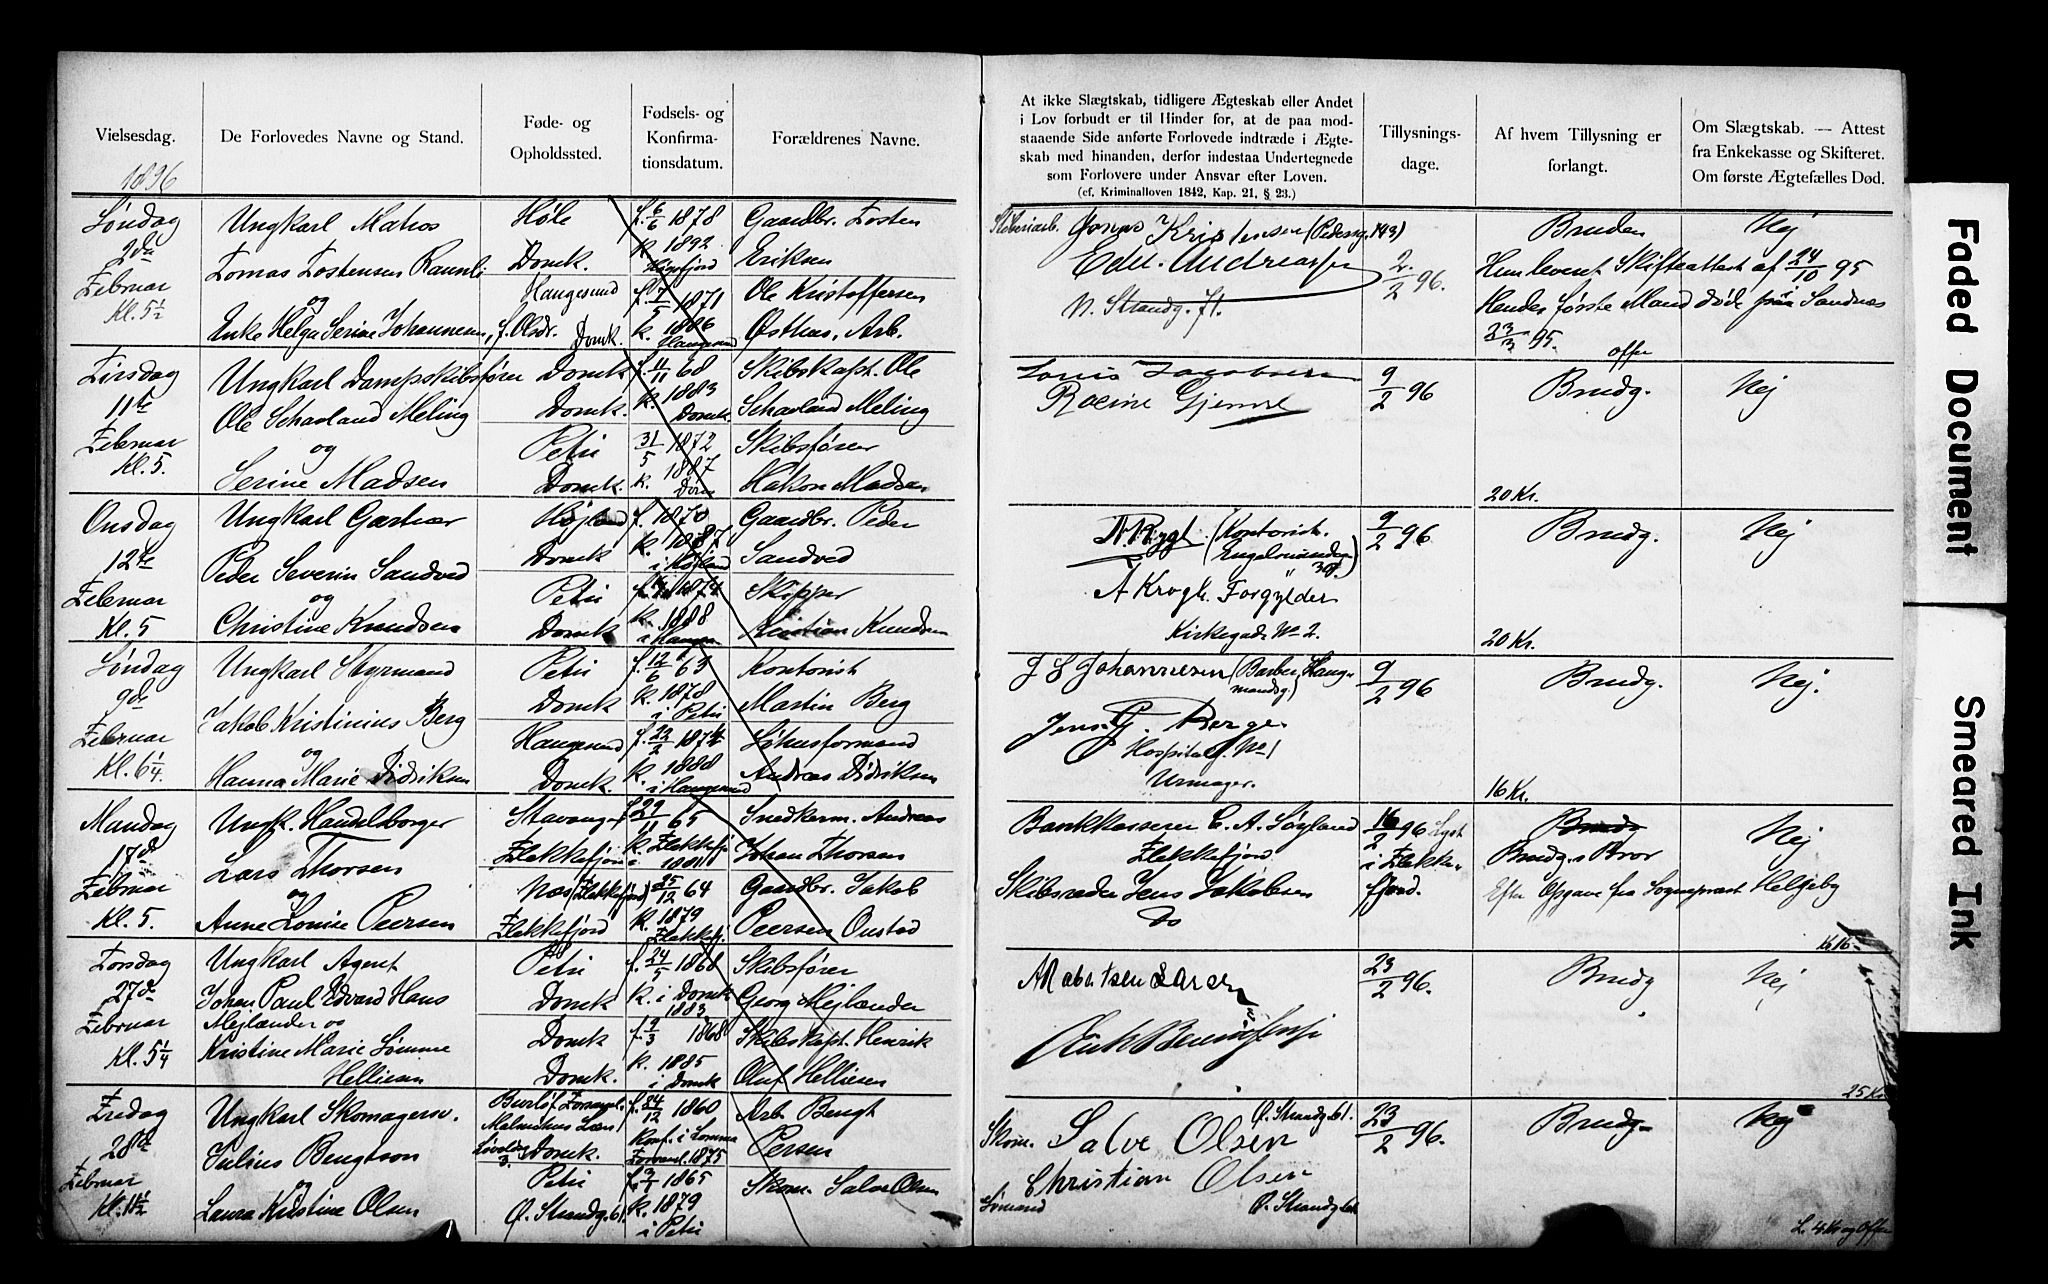 Vielsesdag.
De Forlovedes Navne og Stand.
Føde- og
Opholdssted.
Fødsels- og
Konfirma-
tionsdatum.
Forældrenes Navne.
At ikke Slægtskab, tidligere Ægteskab eller Andet
i Lov forbudt er til Hinder for, at de paa mod-
staaende Side anførte Forlovede indtræde i Ægte-
skab med hinanden, derfor indestaa Undertegnede
som Forlovere under Ansvar efter Loven.
(cf. Kriminalloven 1842, Kap. 21, § 23.)
Tillysnings-
dage.
Af hvem Tillysning er
forlangt.
Om Slægtskab. — Attest
fra Enkekasse og Skifteret.
Om første Ægtefælles Død.
1896
Søndag
2den
Februar
Kl. 5½
Ungkarl Matros
Tomas Tostensen
og
Enke Helga Serine Johannesen, f. Olsdr.
Høle
Domk.
Haugesund
Domk.
f. 6/6 1878
k. 1892
Høgsfjord
f. 7/5 1871
k. 1886
Haugesund
Gaardbr. Tosten
Eriksen
Ole Kristoffersen
Østhus, Arb.
Jonas Kristensen (Pedersg. 143)
Edv. Andreassen
N. Strandg. 71.
2/2 96.
Bruden
Nej
Hun levert Skifteattest af 24/10 95
Hendes første Mand døde i Sandnes
23/3 95.
offer
Tirsdag
11te
Februar
Kl. 5.
Ungkarl Dampskibsfører
Ole Schavland Meling
og
Serine Madsen
Domk
Domk.
Petri
Domk.
f. 4/11 68
k. 1883
Domk.
31/5 1872
k. 1887
Dom
Skibskapt. Ole
Schavland Meling
Skibsfører
Hakon Madsen
Louis Jacobsen
9/2 96
Brudg.
Nej
20 Kr.
Onsdag
12te
Februar
Kl. 5
Ungkarl Gartner
Peder Severin Sandved
og
Christine Knudsen
Højland
Domk
Petri
Domk
f. 1870
k. 1887
i Højland
1874
k. 1888
i Haugesd
Gaardbr. Peder
Sandved
Skipper
Kristian Knudsen
N. Rygh (Kontorist.
A Krogh. Forgylder
Kirkegade No 2.
9/2 96.
Brudg.
Nej
20 Kr.
Søndag
9de
Februar
Kl. 6¼.
Ungkarl Styrmand
Jakob Kristinius Berg
og
Hanna Marie Didriksen
Petri
Domk
Haugesund
Domk.
f. 12/6 63
k. 1878
i Petri
f. 22/2 1874
k. 1888
i Haugesund
Kontorist
Martin Berg
Søhusformand
Andreas Didriksen
J S Johannesen (Barber, Haug-
mandsg.)
Jens G. Berge
Hospitalg. No 1
Urmager.
9/2 96
Brudg.
Nej.
16 Kr.
Mandag
17de
Februar
Kl. 5.
Ungk. Handelsborger
Lars Thorsen
og
Anne Louise Peersen
Stavanger
Flekkefjord
Næs (Flekkefjord)
Flekkefjord
f. 29/11 65
k. Flekkefj
1881
25/12 64
k. 1879
Flekkefj.
Snedkerm. Andreas
Johan Thorsen
Gaardbr. Jakob
Peersen Onstad
Bankkasserer C. A. Søyland
Flekkefjord.
Skibsreder Jens Jakobsen
Do
16/2 96 Lyst
i Flekke-
fjord.
Brudg
Brudg.s Bror
Nej
Efter Opgave fra Sogneprest Helgeby
Kr 16
Torsdag
27de
Februar
Kl. 5¼
Ungkarl Agent
Johan Paul Edvard Hans
Mejlænder og
Kristine Marie Sømme
Helliesen
Petri
Domk
Domk
Domk.
f. 24/5 1868
k. i Domk
1883
f. 9/3 1868
k. 1885
i Domk
Skibsfører
Georg Mejlænder
Skibskapt. Henrik
Oluf Helliesen
23/2 96.
Brudg
Nej
25 Kr.
Fredag
28de
Februar
Kl. 11½
Ungkarl Skomagersv.
Julius Bengtson
og
Laura Kristine Olsen
Burløf Forsaml.
Malmøhus Læn
Domk.
Petri
Ø. Strandg. 61.
f. 24/12 1860
konf. i Lomma
Forsaml. 1875
f. 3/2 1865
k. 1879
i Petri
Arb Bengt
Persen
Skom. Salve Olsen
Skom. Salve Olsen Ø. Strandg. 61.
Christian Olsen
Sømand
Ø. Strandg 61
23/2 96.
Brudg.
Nej
L. 4 Kr og Offer
Faded Document
Smeared Ink